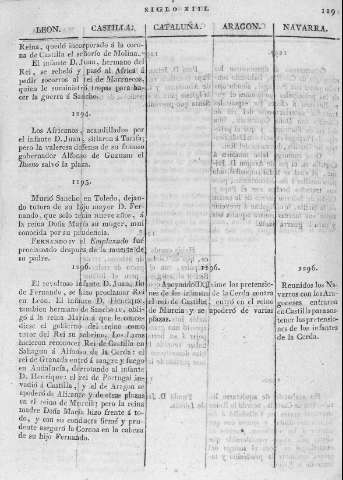 SIGLO XIII.
119
LEON.
CASTILLA.
CATALUÑA.
ARAGON.
NAVARRA.
Reina, quedó incorporado á la coro-
na de Castilla el señorío de Molina.
El infante D. Juan, hermano del
Rei, se rebeló y pasó al Africa á
pedir socorros al rei de Marruecos,
quien le suministró tropas para ha-
cer la guerra á Sancho.
1294.
Los Africanos, acaudillados por
el infante D. Juan, sitiaron á Tarifa;
pero la valerosa defensa de su famoso
gobernador Alfonso de Guzman el
Bueno salvó la plaza.
1295.
Murió Sancho en Toledo, dejan-
do tutora de su hijo mayor D. Fer-
nando, que solo tenia nueve años, á
la reina Doña María su muger, mui
conocida por su prudencia.
FERNANDO IV el Emplazado fue
proclamado despues de la muerte de
su padre.
1296.
El revoltoso infante D. Juan, tio
de Fernando, se hizo proclamar Rei
en Leon. El infante D. Henrique,
tambien hermano de Sancho IV, obli-
gó á la reina María á que le conce-
diese el gobierno del reino como
tutor del Rei su sobrino. Los Laras
hicieron reconocer Rei de Castilla en
Sahagun á Alfonso de la Cerda: el
rei de Granada entró á sangre y fuego
en Andalucía, derrotando al infante
D. Henrique: el rei de Portugal in-
vadió á Castilla; y el de Aragon se
apoderó de Alicante y de otras plazas
en el reino de Murcia; pero la reina
madre Doña María hizo frente á to-
do, y con su conducta firme y pru-
dente aseguró la Corona en la cabeza
de su hijo Fernando.
1296.
Apoyando Jaime las pretensio-
nes de los infantes de la Cerda contra
el rei de Castilla, entró en el reino
de Murcia y se apoderó de varias
plazas.
1296.
Reunidos los Na-
varros con los Ara-
goneses, entraron
en Castilla para sos-
tener las pretensio-
nes de los infantes
de la Cerda.